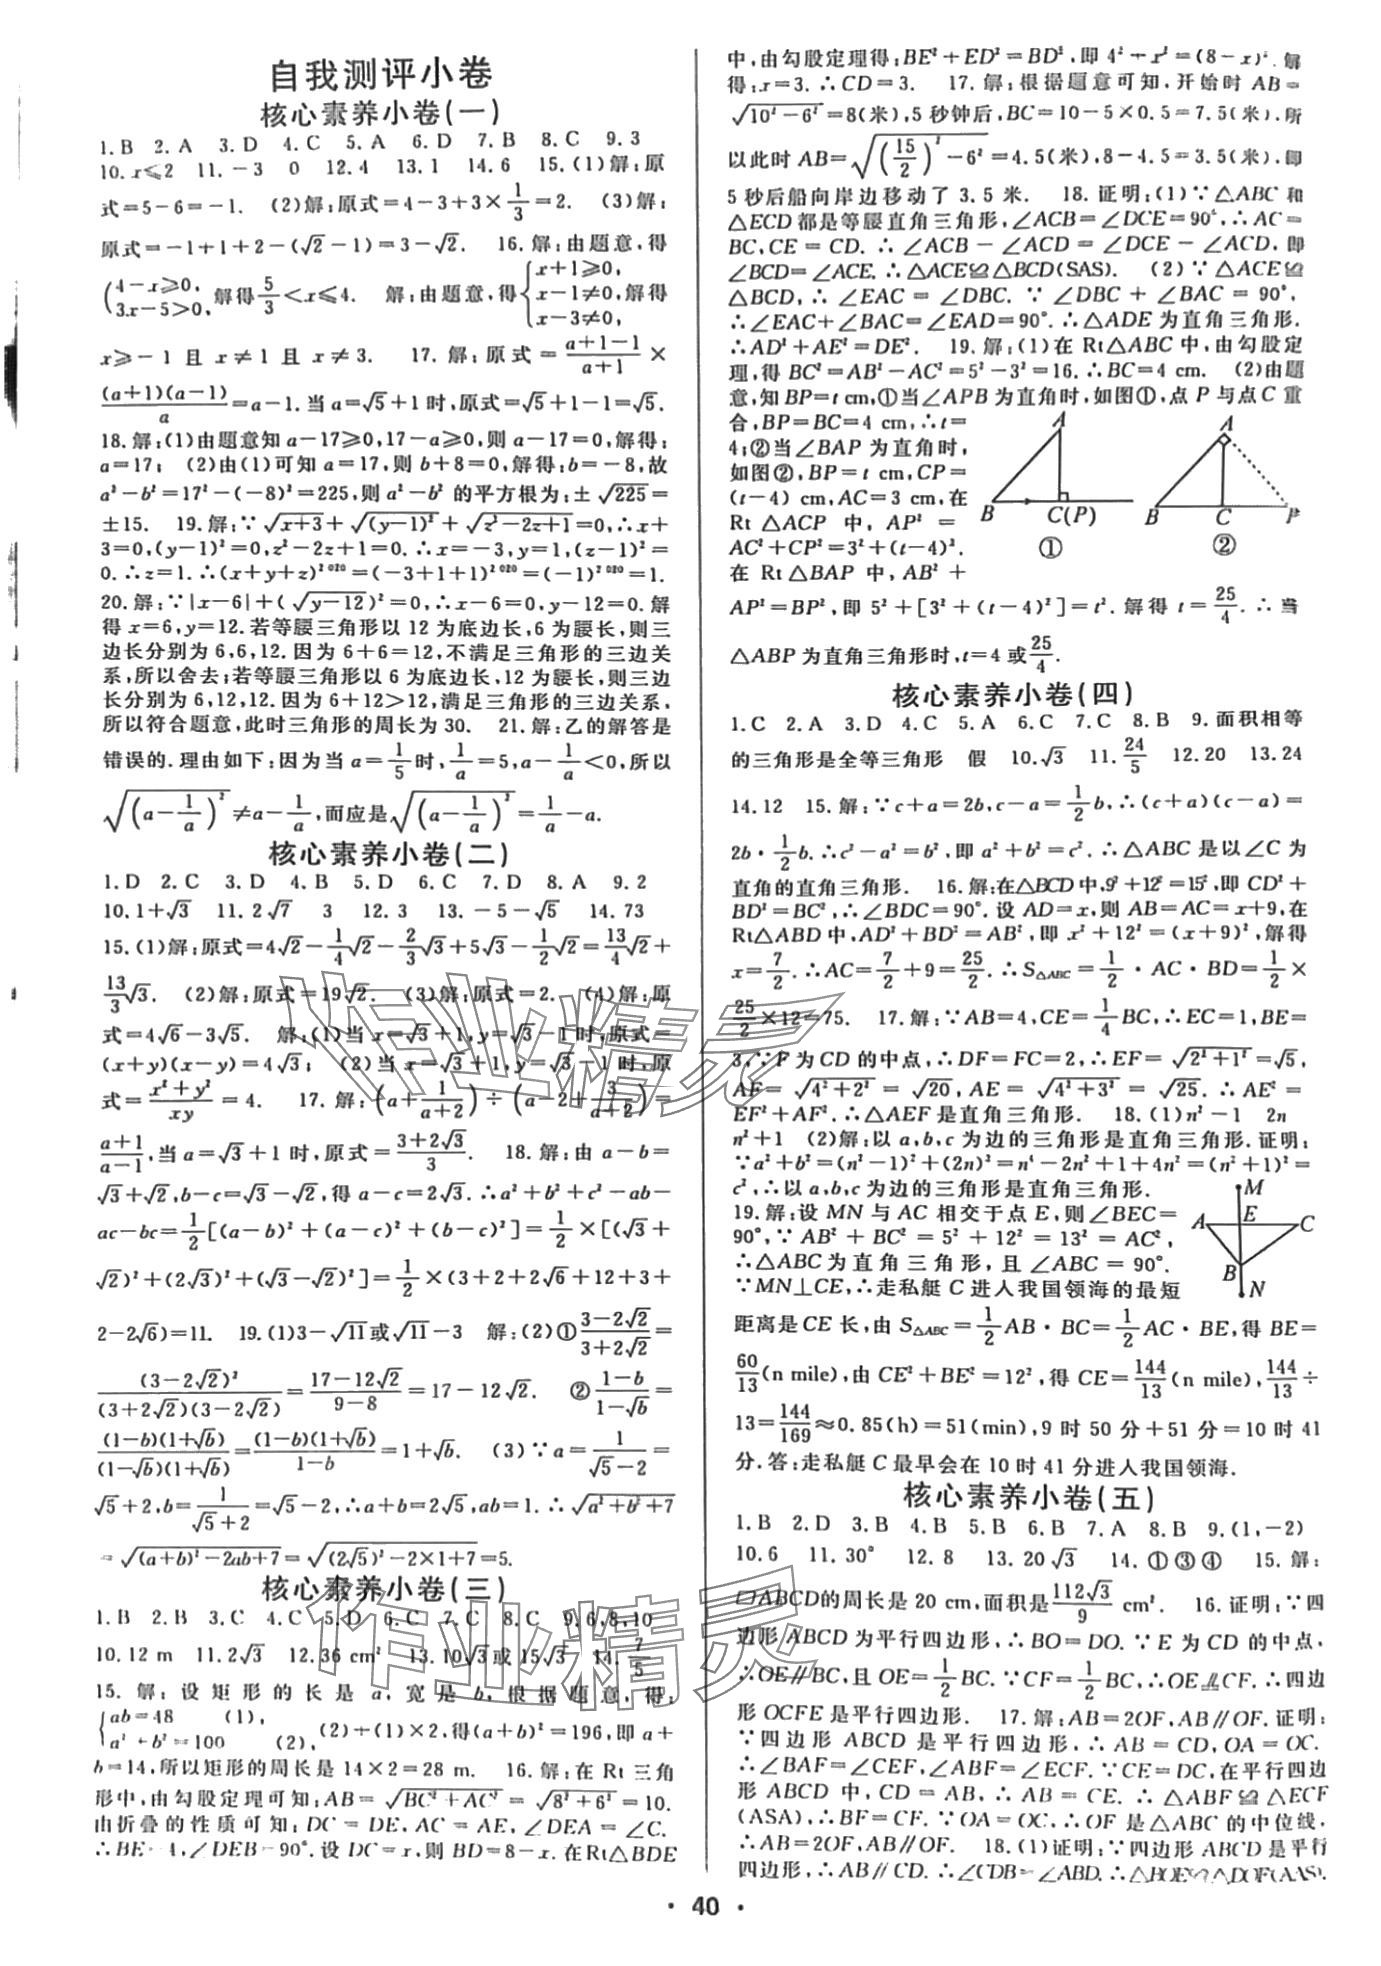 自我测评小卷
核心素养小卷(一)
1.B 2.A 3.D 4.C 5.A 6.D 7.B 8.C 9.3
10.x⩽2 11.-3 0 12.4 13.1 14.6 15.(1)解:原
式=5-6=-1. (2)解:原式=4-3+3×1/3=2. (3)解:
原式=-1+1+2-(√2-1)=3-√2. 16.解:由题意,得
{4-x⩾0, 3x-5>0, 解得5/3<x⩽4. 解:由题意,得{x+1⩾0, x-1≠0, x-3≠0, 解得
x⩾-1 且 x≠1 且 x≠3. 17.解:原式=(a+1-1)/(a+1)×
(a+1)(a-1)/a=a-1.当a=√5+1时,原式=√5+1-1=√5.
18.解:(1)由题意知a-17⩾0,17-a⩾0,则a-17=0,解得:
a=17; (2)由(1)可知a=17,则b+8=0,解得:b=-8,故
a²-b²=17²-(-8)²=225,则a²-b²的平方根为:±√225=
±15. 19.解:∵√(x+3)+√((y-1)²)+√(z²-2z+1)=0,∴x+
3=0,(y-1)=0,z²-2z+1=0.∴x=-3,y=1,(z-1)²=
0.∴z=1.∴(x+y+z)²⁰²⁰=(-3+1+1)²⁰²⁰=(-1)²⁰²⁰=1.
20.解:∵|x-6|+(√(y-12))²=0,∴x-6=0,y-12=0.解
得x=6,y=12.若等腰三角形以12为底边长,6为腰长,则三
边长分别为6,6,12.因为6+6=12,不满足三角形的三边关
系,所以舍去;若等腰三角形以6为底边长,12为腰长,则三边
长分别为6,12,12.因为6+12>12,满足三角形的三边关系,
所以符合题意,此时三角形的周长为30. 21.解:乙的解答是
错误的.理由如下:因为当a=1/5时,1/a=5,a-1/a<0,所以
√((a-1/a)²)≠a-1/a,而应是√((a-1/a)²)=1/a-a.
核心素养小卷(二)
1.D 2.C 3.D 4.B 5.D 6.C 7.D 8.A 9.2
10.1+√3 11.2√7 3 12.3 13.-5-√5 14.73
15.(1)解:原式=4√2-1/4√2-2/3√3+5√3-1/2√2=13/4√2+
13/3√3. (2)解:原式=19√2. (3)解:原式=2. (4)解:原
式=4√6-3√5. 解:(1)当x=√3+1,y=√3-1时,原式=
(x+y)(x-y)=4√3; (2)当x=√3+1,y=√3-1时,原
式=(x²+y²)/xy=4. 17.解:(a+1/(a+2))÷(a-2+3/(a+2))=
(a+1)/(a-1),当a=√3+1时,原式=(3+2√3)/3. 18.解:由a-b=
√3+√2,b-c=√3-√2,得a-c=2√3.∴a²+b²+c²-ab-
ac-bc=1/2[(a-b)²+(a-c)²+(b-c)²]=1/2×[(√3+
√2)²+(2√3)²+(√3-√2)²]=1/2×(3+2+2√6+12+3+
2-2√6)=11. 19.(1)3-√11或√11-3 解:(2)①(3-2√2)/(3+2√2)=
(3-2√2)²/((3+2√2)(3-2√2))=(17-12√2)/(9-8)=17-12√2. ②(1-b)/(1-√b)=
(1-b)(1+√b)/((1-√b)(1+√b))=(1-b)(1+√b)/(1-b)=1+√b. (3)∵a=1/(√5-2)=
√5+2,b=1/(√5+2)=√5-2,∴a+b=2√5,ab=1.∴√(a²+b²+7)
=√((a+b)²-2ab+7)=√((2√5)²-2×1+7)=5.
核心素养小卷(三)
1.B 2.B 3.C 4.C 5.D 6.C 7.C 8.C 9.6,8,10
10.12 m 11.2√3 12.36 cm² 13.10√3或15√3 14.7/5
15.解:设矩形的长是a,宽是b,根据题意,得:
{ab=48 (1), a²+b²=100 (2), (2)+(1)×2,得(a+b)²=196,即a+
b=14,所以矩形的周长是14×2=28 m. 16.解:在Rt三角
形中,由勾股定理可知:AB=√(BC²+AC²)=√(8²+6²)=10.
由折叠的性质可知:DC=DE,AC=AE,∠DEA=∠C.
∴BE=4,∠DEB=90°.设DC=x,则BD=8-x.在Rt△BDE
中,由勾股定理得:BE²+ED²=BD²,即4²+x²=(8-x)².解
得:x=3.∴CD=3. 17.解:根据题意可知,开始时AB=
√(10²-6²)=8(米),5秒钟后,BC=10-5×0.5=7.5(米),所
以此时AB=√((15/2)²-6²)=4.5(米),8-4.5=3.5(米),即
5秒后船向岸边移动了3.5米. 18.证明:(1)∵△ABC和
△ECD都是等腰直角三角形,∠ACB=∠DCE=90°,∴AC=
BC,CE=CD.∴∠ACB-∠ACD=∠DCE-∠ACD,即
∠BCD=∠ACE.∴△ACE≌△BCD(SAS). (2)∵△ACE≌
△BCD,∴∠EAC=∠DBC.∵∠DBC+∠BAC=90°,
∴∠EAC+∠BAC=∠EAD=90°.∴△ADE为直角三角形.
∴AD²+AE²=DE². 19.解:(1)在Rt△ABC中,由勾股定
理,得BC²=AB²-AC²=5²-3²=16.∴BC=4 cm. (2)由题
意,知BP=t cm,①当∠APB为直角时,如图①,点P与点C重
合,BP=BC=4 cm,∴t=
4;②当∠BAP为直角时,
如图②,BP=t cm,CP=
(t-4) cm,AC=3 cm,在
Rt△ACP中,AP²=
AC²+CP²=3²+(t-4)².
在Rt△BAP中,AB²+
AP²=BP²,即5²+[3²+(t-4)²]=t².解得t=25/4.∴当
△ABP为直角三角形时,t=4或25/4.
A B C(P) ①
A B C P ②
核心素养小卷(四)
1.C 2.A 3.D 4.C 5.A 6.C 7.C 8.B 9.面积相等
的三角形是全等三角形 假 10.√3 11.24/5 12.20 13.24
14.12 15.解:∵c+a=2b,c-a=1/2b,∴(c+a)(c-a)=
2b·1/2b.∴c²-a²=b²,即a²+b²=c².∴△ABC是以∠C为
直角的直角三角形. 16.解:在△BCD中,9²+12²=15²,即CD²+
BD²=BC²,∴∠BDC=90°.设AD=x,则AB=AC=x+9,在
Rt△ABD中,AD²+BD²=AB²,即x²+12²=(x+9)²,解得
x=7/2.∴AC=7/2+9=25/2.∴S△ABC=1/2·AC·BD=1/2×
25/2×12=75. 17.解:∵AB=4,CE=1/4BC,∴EC=1,BE=
3,∵F为CD的中点,∴DF=FC=2,∴EF=√(2²+1²)=√5,
AF=√(4²+2²)=√20,AE=√(4²+3²)=√25.∴AE²=
EF²+AF².∴△AEF是直角三角形. 18.(1)n²-1 2n
n²+1 (2)解:以a,b,c为边的三角形是直角三角形.证明:
∵a²+b²=(n²-1)²+(2n)²=n⁴-2n²+1+4n²=(n²+1)²=
c²,∴以a,b,c为边的三角形是直角三角形.
19.解:设MN与AC相交于点E,则∠BEC=
90°,∵AB²+BC²=5²+12²=13²=AC²,
∴△ABC为直角三角形,且∠ABC=90°.
∵MN⊥CE,∴走私艇C进入我国领海的最短
距离是CE长,由S△ABC=1/2AB·BC=1/2AC·BE,得BE=
60/13(n mile),由CE²+BE²=12²,得CE=144/13(n mile),144/13÷
13=144/169≈0.85(h)=51(min),9时50分+51分=10时41
分.答:走私艇C最早会在10时41分进入我国领海.
M A E C B N
核心素养小卷(五)
1.B 2.D 3.B 4.B 5.B 6.B 7.A 8.B 9.(1,-2)
10.6 11.30° 12.8 13.20√3 14.①③④ 15.解:
▱ABCD的周长是20 cm,面积是112√3/9 cm². 16.证明:∵四
边形ABCD为平行四边形,∴BO=DO.∵E为CD的中点,
∴OE∥BC,且OE=1/2BC.∵CF=1/2BC,∴OE⫽CF.∴四边
形OCFE是平行四边形. 17.解:AB=2OF,AB∥OF.证明:
∵四边形ABCD是平行四边形,∴AB=CD,OA=OC.
∴∠BAF=∠CEF,∠ABF=∠ECF.∵CE=DC,在平行四边
形ABCD中,CD=AB,∴AB=CE.∴△ABF≌△ECF
(ASA),∴BF=CF.∵OA=OC,∴OF是△ABC的中位线,
∴AB=2OF,AB∥OF. 18.(1)证明:∵四边形ABCD是平行
四边形,∴AB∥CD.∴∠CDB=∠ABD.∴△BOE≌△DOF(AAS).
· 40 ·
作业精灵
作业精灵